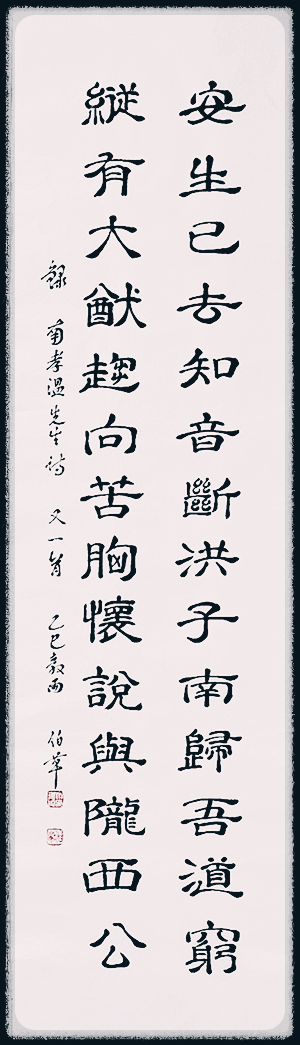 安生已去知音斷洪子南歸吾道窮
縱有大猷趨向苦胸懷說與隴西公
錄南孝溫先生詩 又一首 乙巳穀雨 伯葦